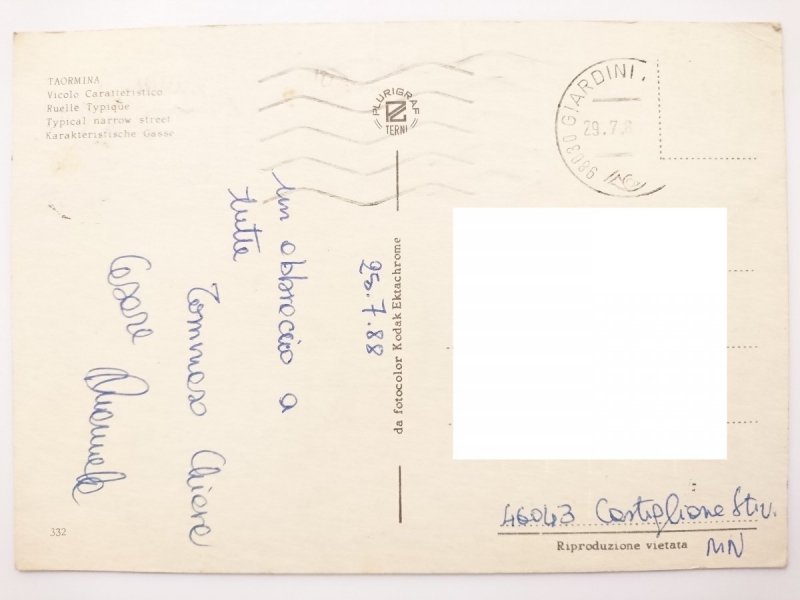 TAORMINA
Vicolo Caratteristico
Ruelle Typique
Typical narrow street
Karakteristische Gasse
PLURIGRAF
TERNI
98030 GIARDINI
29.7.8
25.7.88
un abbraccio a
tutte
Tommaso Chiara
Cesare
Manuela
da fotocolor Kodak Ektachrome
46043 Castiglione Stiv.
MN
332
Riproduzione vietata